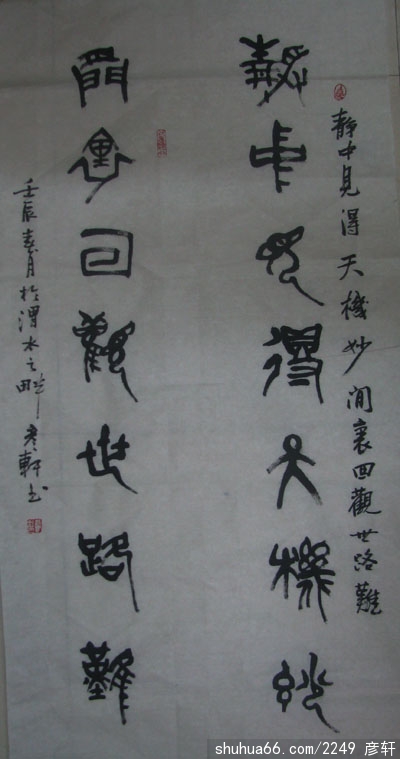 靜中見得天機妙閒裏回觀世路難
靜中見得天機妙
閒裏回觀世路難
壬辰月於渭水之畔彥軒书
shuhua66.com/2249 彦轩